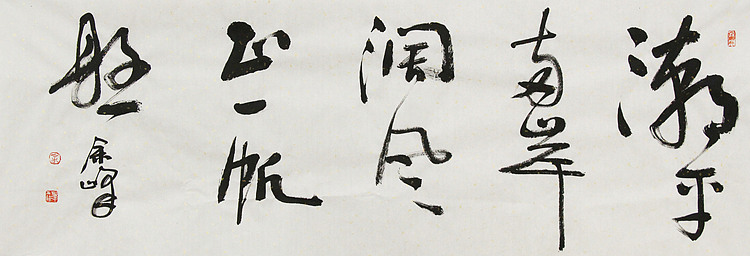 潮平
两岸
阔风
正一帆
悬
余峰